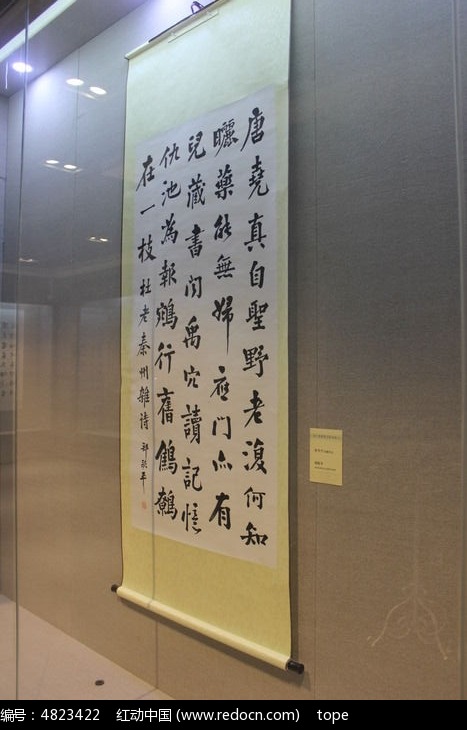 唐堯真自聖野老復何知
曬藥能無婦應门亦有
兒藏書闻禹穴讀記憶
仇池為報鵷行舊鷦鷯
在一枝 杜老秦州雜诗
编号：4823422 红动中国 (www.redocn.com) tope